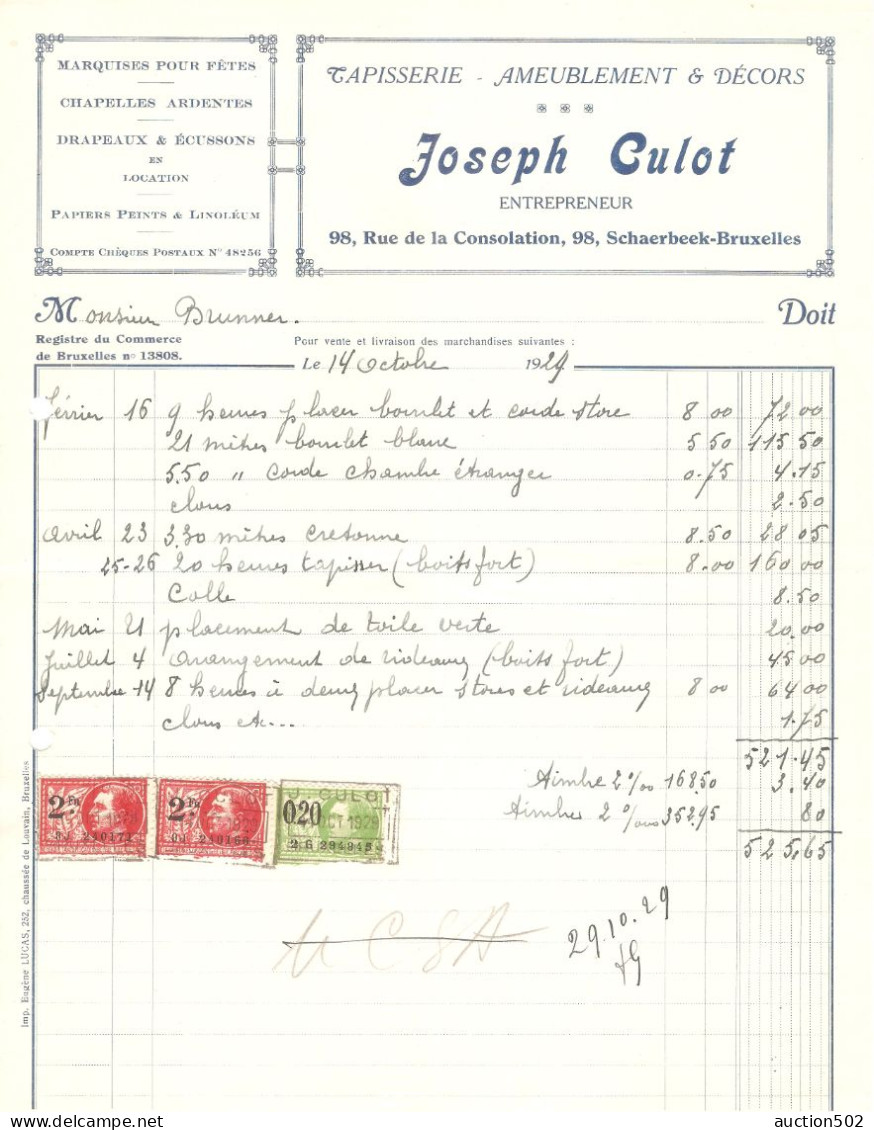 MARQUISES POUR FÊTES
CHAPELLES ARDENTES
DRAPEAUX & ÉCUSSONS
EN
LOCATION
PAPIERS PEINTS & LINOLÉUM
COMPTE CHÈQUES POSTAUX N° 48256
TAPISSERIE - AMEUBLEMENT & DÉCORS
Joseph Culot
ENTREPRENEUR
98, Rue de la Consolation, 98, Schaerbeek-Bruxelles
Monsieur Brunner. Doit
Registre du Commerce
de Bruxelles n° 13808.
Pour vente et livraison des marchandises suivantes :
Le 14 Octobre 1929
février 16 9 heures placer bourlet et corde store 8 00 72 00
21 mètres bourlet blanc 5 50 115 50
5.50 " corde chambre étranger 0.75 4.15
clous 2.50
avril 23 3.30 mètres cretonne 8.50 28 05
25-26 20 heures tapisser (boitsfort) 8.00 160 00
Colle 8.50
Mai 21 placement de toile verte 20.00
Juillet 4 arrangement de rideaux (boits fort) 45 00
Septembre 14 8 heures à deux placer stores et rideaux 8 00 64 00
clous etc... 1.75
521.45
Timbre 2 %00 168,50 3.40
Timbre 2 352.95 80
525.65
2 Fr
2 Fr
J. CULOT
0.20
OCT 1929
29.10.29
Imp. Eugène LUCAS, 252, chaussée de Louvain, Bruxelles
auction502